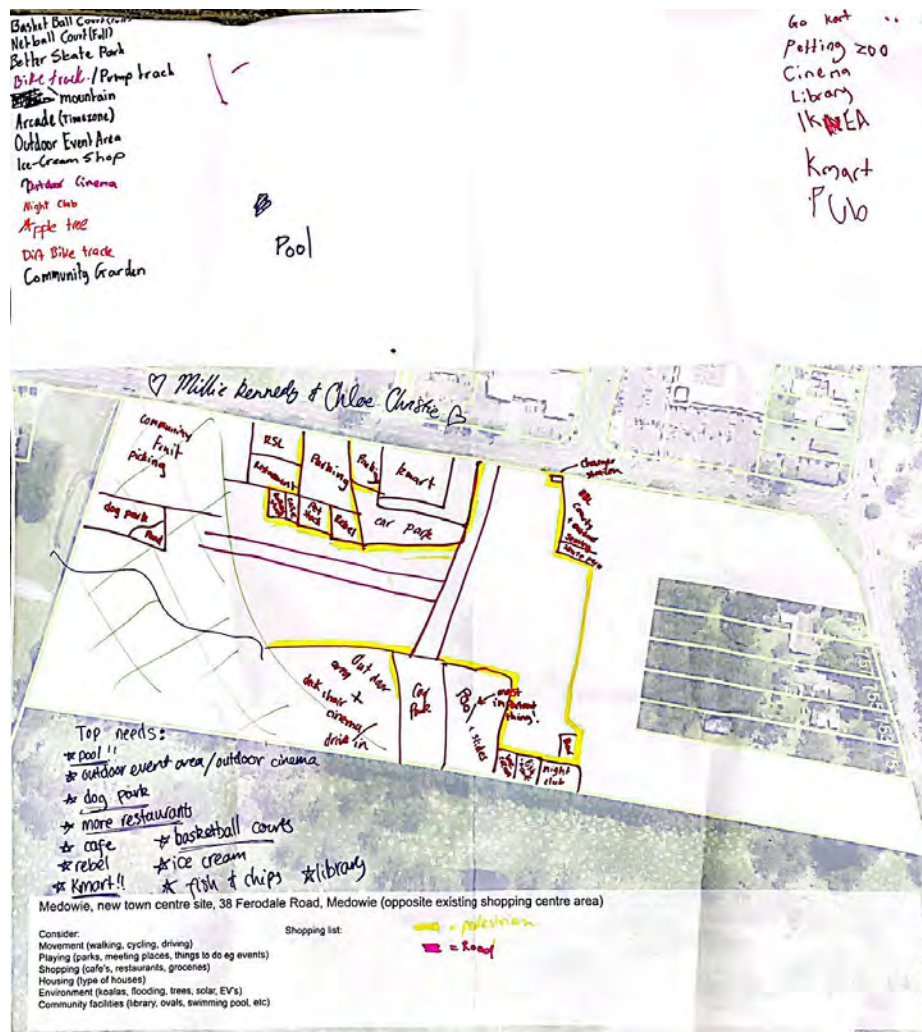 Basket Ball Court
Netball Court (Full)
Better Skate Park
Bike track / Pump track
mountain
Arcade (Timezone)
Outdoor Event Area
Ice-Cream Shop
Outdoor Cinema
Night Club
Apple tree
Dirt Bike track
Community Garden
Pool
Go Kart
Petting zoo
Cinema
Library
IKEA
Kmart
PUb
♡ Millie Kennedy & Chloe Christie ♡
community
Fruit
picking
dog park
Pond
RSL
restaurant
Parking
Kmart
Rebel
car park
charger
station
RSL
outdoor
Out door
area +
deck chair
cinema/
drive in
Car
Park
Pool
+ slides
most
important
thing!
night
club
Top needs:
☆ pool!!
☆ outdoor event area/outdoor cinema
☆ dog park
☆ more restaurants
☆ cafe
☆ basketball courts
☆ rebel
☆ ice cream
☆ Kmart!!
☆ fish & chips
☆ library
Medowie, new town centre site, 38 Ferodale Road, Medowie (opposite existing shopping centre area)
Consider:
Movement (walking, cycling, driving)
Playing (parks, meeting places, things to do eg events)
Shopping (cafe's, restaurants, groceries)
Housing (type of houses)
Environment (koalas, flooding, trees, solar, EV's)
Community facilities (library, ovals, swimming pool, etc)
Shopping list:
= pedestrian
= Road